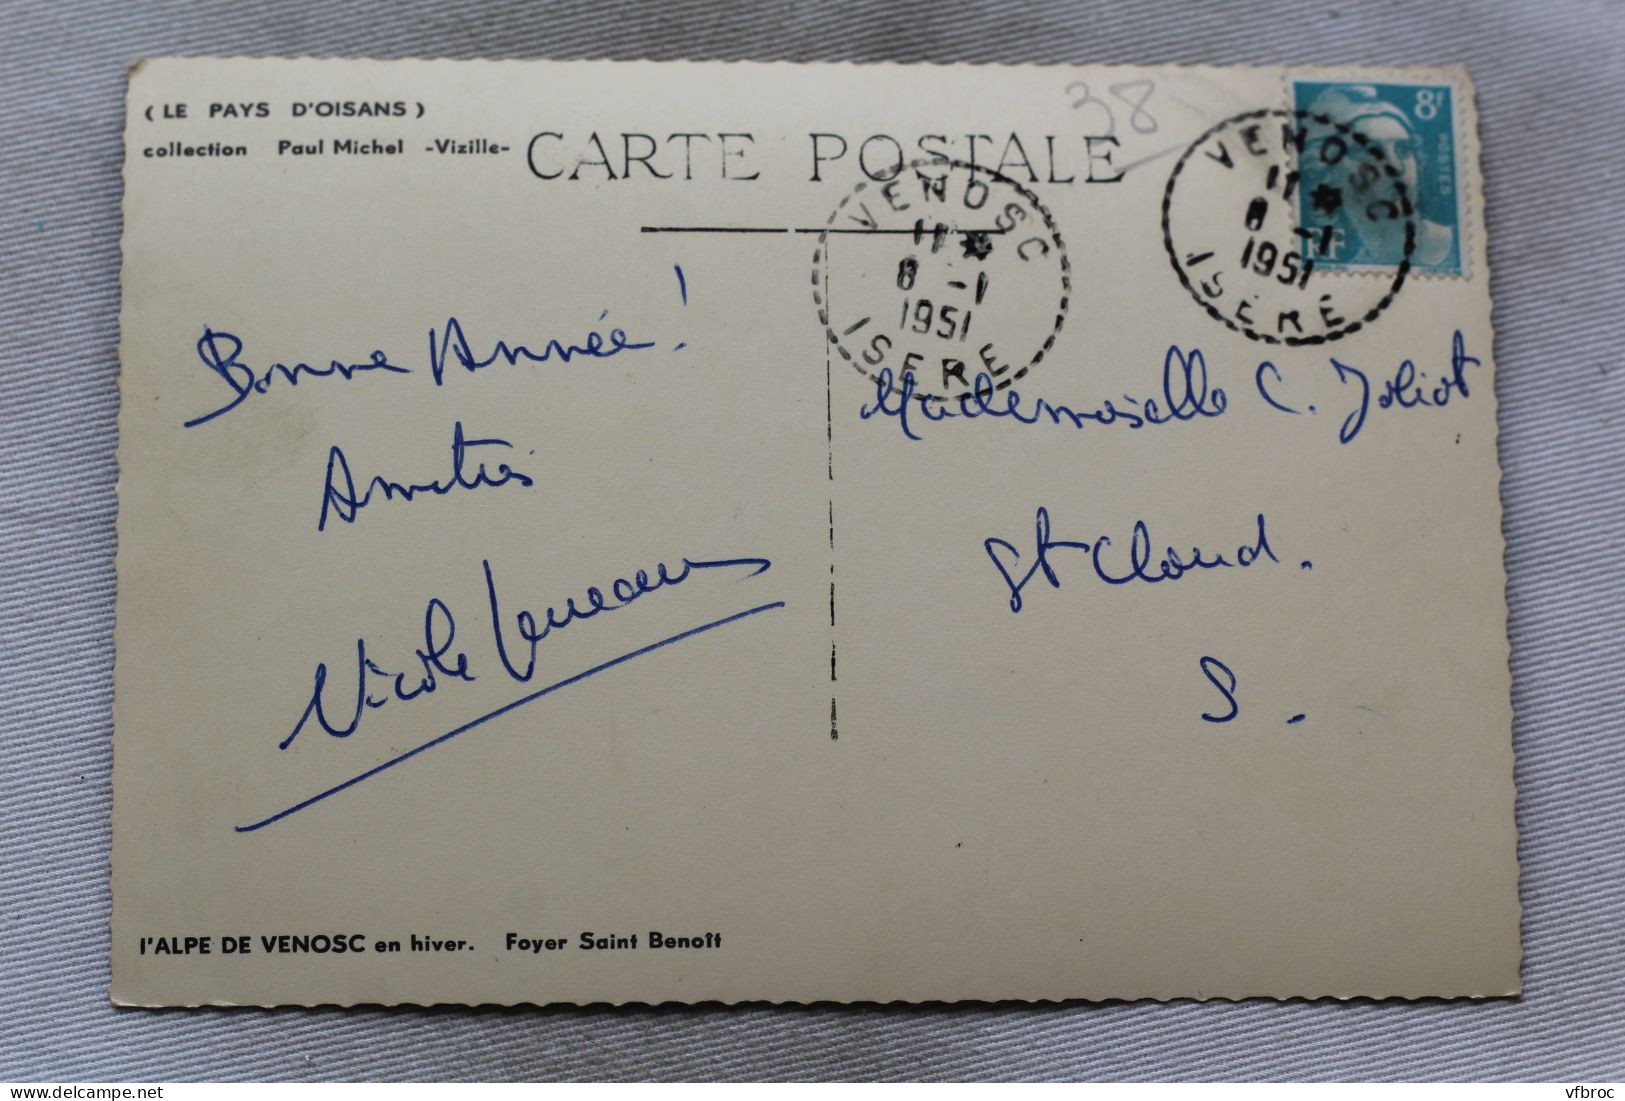 ( LE PAYS D'OISANS )
collection Paul Michel -Vizille-
CARTE POSTALE
38
8F
POSTES
RF
VENOSC
11 *
8 -1
1951
ISERE
VENOSC
11 *
8 -1
1951
ISERE
Bonne Année !
Amitiés
Nicole
Mademoiselle C. Joliot
St Cloud.
S.
l'ALPE DE VENOSC en hiver. Foyer Saint Benoît
vfbroc